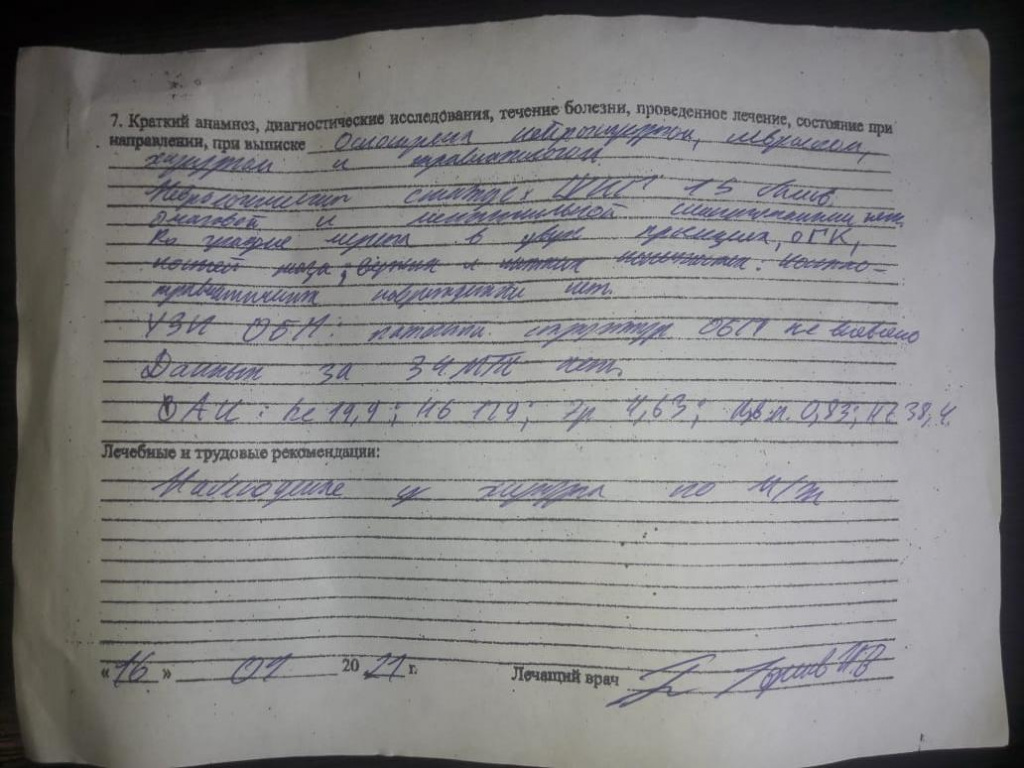 7. Краткий анамноз, диагностические исследования, течение болезни, проведенное лечение, состояние при
направлении, при выписке Осмотрена нейрохирургом, неврологом,
хирургом и травматологом
Неврологический статус: ШКГ 15 балов.
очаговой и менингиальной симптоматики нет.
Rn графие черепа в двух проекциях, ОГК,
костей таза,
травматических повреждений нет.
УЗИ ОБП: патологий структур ОБП не
Данных за ЗЧМТ нет.
ОАК: Le 19,9; Нб 129; Эр 4,63; Цв.п. 0,83; Ht 38,4.
Лечебные и трудовые рекомендации:
Наблюдение у хирурга по м/ж
«16» 01 2021 г.
Лечащий врач